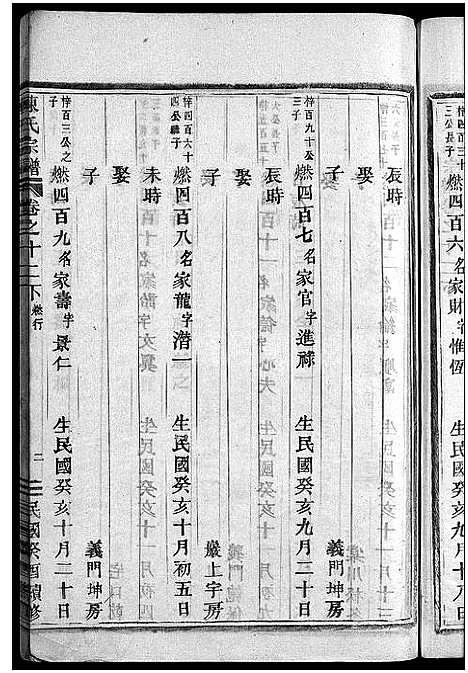 梓四百三十三公長子
燃四百六名家財字惟恆 生民國癸亥九月十八日
辰時
娶
子
梓百九十公子
燃四百七名家官字進祿 生民國癸亥九月二十日
義門坤房
辰時
娶
子
梓四百六十四公繼子
燃四百八名家龍字潛一 生民國癸亥十月初五日
嚴上字房
未時
娶
子
梓百三公之子
燃四百九名家壽字景仁 生民國癸亥十月二十日
義門坤房
陳氏宗譜 卷之十二下 燃行 二 民國癸酉續修